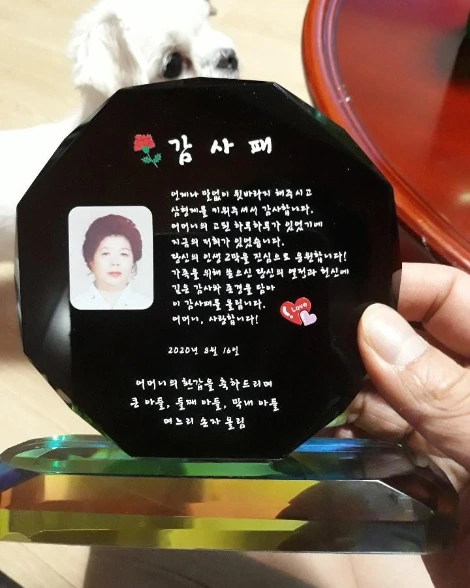 감사패
언제나 말없이 뒷바라지 해주시고
삼형제를 키워주셔서 감사합니다.
어머니의 고된 하루하루가 있었기에
지금의 저희가 있었습니다.
당신의 인생 2막을 진심으로 응원합니다!
가족을 위해 쏟으신 당신의 열정과 헌신에
깊은 감사와 존경을 담아
이 감사패를 올립니다.
어머니, 사랑합니다!
Love
2020년 8월 16일
어머니의 환갑을 축하드리며
큰 아들, 둘째 아들, 막내 아들
며느리 손자 올림